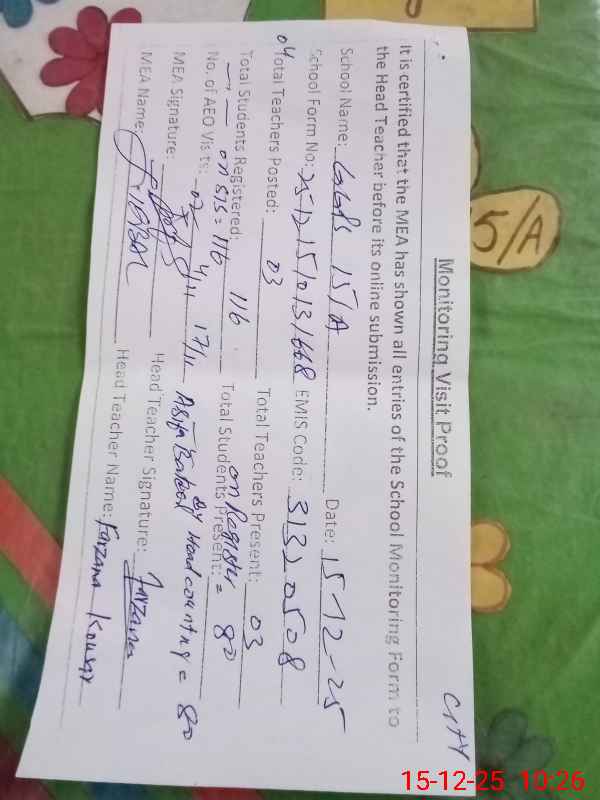 City
Monitoring Visit Proof
It is certified that the MEA has shown all entries of the School Monitoring Form to
the Head Teacher before its online submission.
School Name: GGPS 15/A Date: 15-12-25
School Form No: 25-12-15/013/668 EMIS Code: 31320508
04
Total Teachers Posted: 03 Total Teachers Present: 03
on Register
Total Students Registered: 116 Total Students Present: = 80
on SIS = 116 by Head counting = 80
No. of AEO Visits: 02 4/11 17/11 Asifa Batool
MEA Signature: Head Teacher Signature: Farzana
MEA Name: IQBAL Head Teacher Name: Farzana Kousar
15/A
15-12-25 10:26